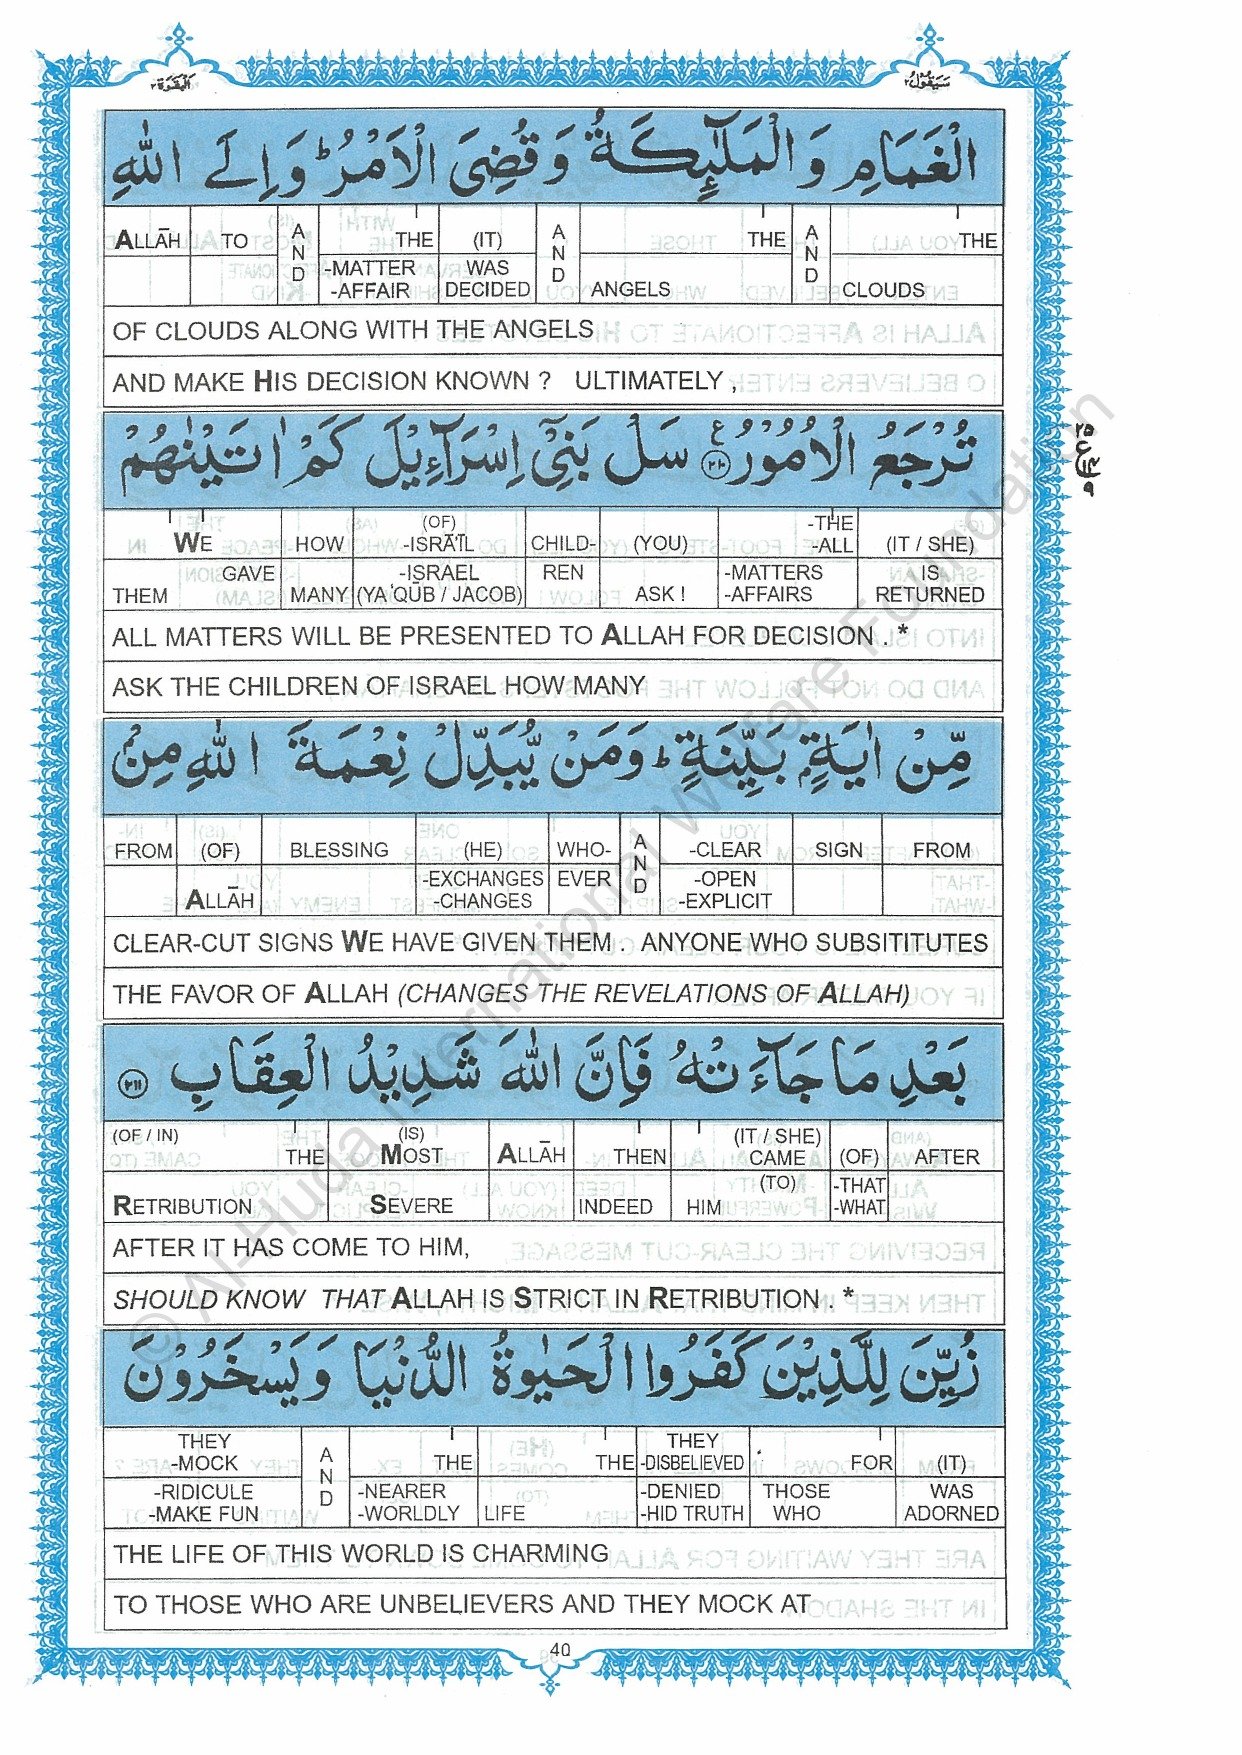 البقرة ٢
سيقول ٢
الْغَمَامِ وَالْمَلٰٓئِكَةُ وَقُضِیَ الْاَمْرُ ؕ وَ اِلَی اللّٰهِ
ALLĀH TO AND THE (IT) AND THE AND THE
-MATTER WAS
-AFFAIR DECIDED ANGELS CLOUDS
OF CLOUDS ALONG WITH THE ANGELS
AND MAKE HIS DECISION KNOWN ? ULTIMATELY ,
تُرْجَعُ الْاُمُوْرُ ۧ ﴿۲۱۰﴾ سَلْ بَنِیْۤ اِسْرَآءِیْلَ كَمْ اٰتَیْنٰهُمْ
(OF) -THE
WE HOW -ISRĀ'ĪL CHILD- (YOU) -ALL (IT / SHE)
GAVE -ISRAEL REN -MATTERS IS
THEM MANY (YA'QŪB / JACOB) ASK ! -AFFAIRS RETURNED
ALL MATTERS WILL BE PRESENTED TO ALLAH FOR DECISION . *
ASK THE CHILDREN OF ISRAEL HOW MANY
مِّنْ اٰیَةٍۭ بَیِّنَةٍ ؕ وَمَنْ یُّبَدِّلْ نِعْمَةَ اللّٰهِ مِنْۢ
FROM (OF) BLESSING (HE) WHO- AND -CLEAR SIGN FROM
-EXCHANGES EVER -OPEN
ALLĀH -CHANGES -EXPLICIT
CLEAR-CUT SIGNS WE HAVE GIVEN THEM . ANYONE WHO SUBSITITUTES
THE FAVOR OF ALLAH (CHANGES THE REVELATIONS OF ALLAH)
بَعْدِ مَا جَآءَتْهُ فَاِنَّ اللّٰهَ شَدِیْدُ الْعِقَابِ ﴿۲۱۱﴾
(OF / IN) (IS) (IT / SHE)
THE MOST ALLĀH THEN CAME (OF) AFTER
(TO) -THAT
RETRIBUTION SEVERE INDEED HIM -WHAT
AFTER IT HAS COME TO HIM,
SHOULD KNOW THAT ALLAH IS STRICT IN RETRIBUTION . *
زُیِّنَ لِلَّذِیْنَ كَفَرُوا الْحَیٰوةُ الدُّنْیَا وَیَسْخَرُوْنَ
THEY THEY
-MOCK AND THE THE -DISBELIEVED FOR (IT)
-RIDICULE -NEARER -DENIED THOSE WAS
-MAKE FUN -WORLDLY LIFE -HID TRUTH WHO ADORNED
THE LIFE OF THIS WORLD IS CHARMING
TO THOSE WHO ARE UNBELIEVERS AND THEY MOCK AT
40
© Al-Huda International Welfare Foundation